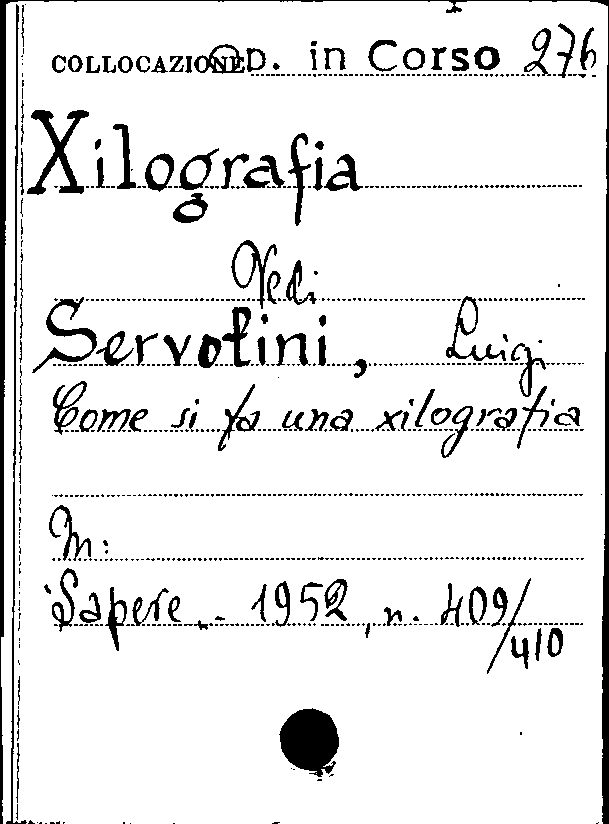 COLLOCAZIONE OP. in Corso 276
Xilografia
Vedi
Servolini, Luigi
Come si fa una xilografia
In:
Sapere.- 1952, n. 409/
/410